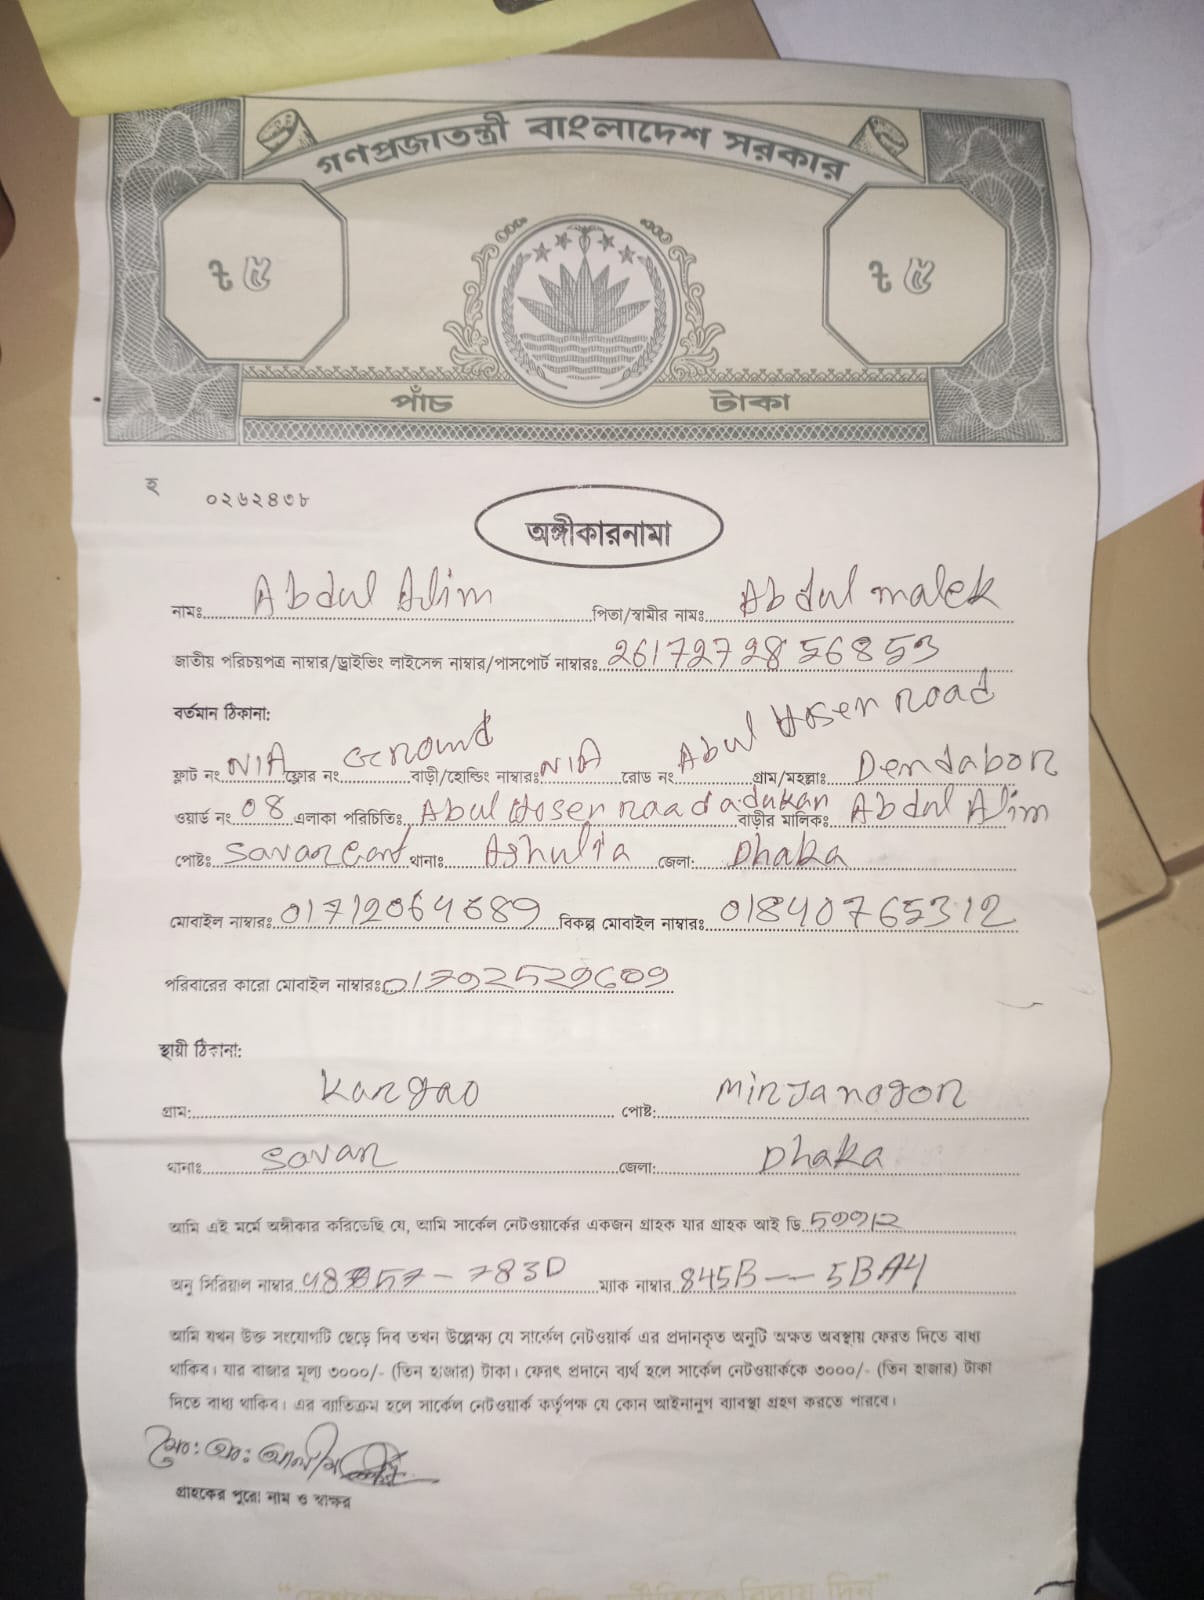 গণপ্রজাতন্ত্রী বাংলাদেশ সরকার
৳ ৫ ৳ ৫
পাঁচ টাকা
হ ০২৬২৪৩৮
অঙ্গীকারনামা
নামঃ Abdul Alim পিতা/স্বামীর নামঃ Abdul malek
জাতীয় পরিচয়পত্র নাম্বার/ড্রাইভিং লাইসেন্স নাম্বার/পাসপোর্ট নাম্বারঃ 2617272856853
বর্তমান ঠিকানা:
ফ্লাট নং N/A ফ্লোর নং Ground বাড়ী/হোল্ডিং নাম্বারঃ N/A রোড নং Abul Hosen road গ্রাম/মহল্লাঃ Dendabor
ওয়ার্ড নং 08 এলাকা পরিচিতিঃ Abul Hosen road a dukan বাড়ীর মালিকঃ Abdul Alim
পোষ্টঃ Savar Cant থানাঃ Ashulia জেলা: Dhaka
মোবাইল নাম্বারঃ 01712064689 বিকল্প মোবাইল নাম্বারঃ 01840765312
পরিবারের কারো মোবাইল নাম্বারঃ 01792529609
স্থায়ী ঠিকানা:
গ্রাম: Kargao পোষ্ট: Mirjanogor
থানাঃ Savar জেলা: Dhaka
আমি এই মর্মে অঙ্গীকার করিতেছি যে, আমি সার্কেল নেটওয়ার্কের একজন গ্রাহক যার গ্রাহক আই ডি
অনু সিরিয়াল নাম্বার ম্যাক নাম্বার 845B--5BA4
আমি যখন উক্ত সংযোগটি ছেড়ে দিব তখন উল্লেক্ষ্য যে সার্কেল নেটওয়ার্ক এর প্রদানকৃত অনুটি অক্ষত অবস্থায় ফেরত দিতে বাধ্য
থাকিব। যার বাজার মূল্য ৩০০০/- (তিন হাজার) টাকা। ফেরৎ প্রদানে ব্যর্থ হলে সার্কেল নেটওয়ার্ককে ৩০০০/- (তিন হাজার) টাকা
দিতে বাধ্য থাকিব। এর ব্যতিক্রম হলে সার্কেল নেটওয়ার্ক কর্তৃপক্ষ যে কোন আইনানুগ ব্যবস্থা গ্রহণ করতে পারবে।
মোঃ আঃ আলীম
গ্রাহকের পুরো নাম ও স্বাক্ষর